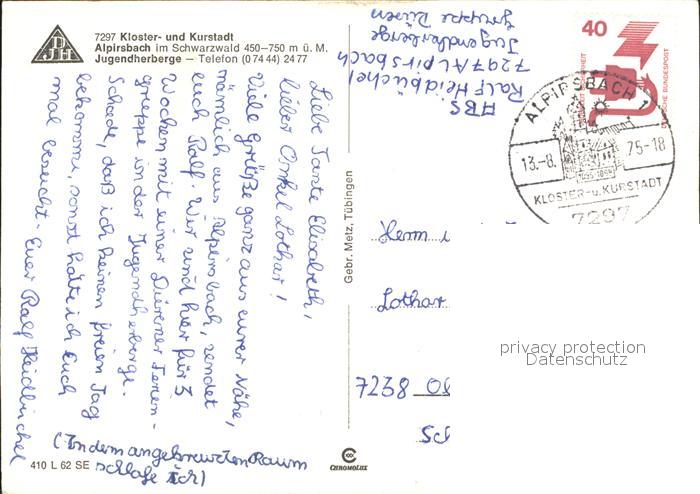 7297 Kloster- und Kurstadt
Alpirsbach im Schwarzwald 450–750 m ü. M.
Jugendherberge – Telefon (0 74 44) 24 77
DJH
Liebe Tante Elisabeth,
lieber Onkel Lothar!
Viele Grüße ganz aus eurer Nähe,
nämlich aus Alpirsbach, sendet
euch Ralf. Wir sind hier für 3
Wochen mit einer Dürener Ferien-
gruppe in der Jugendherberge.
Schade, daß ich keinen freien Tag
bekomme, sonst hätte ich Euch
mal besucht. Euer Ralf Heidbüchel
(In dem angekreuzten Raum
schlafe ich)
410 L 62 SE
Gebr. Metz, Tübingen
CHROMOLUX
ABS
Ralf Heidbüchel
7297 Alpirsbach
Jugendherberge
Gruppe Düren
40
DEUTSCHE BUNDESPOST
ALPIRSBACH 1
13.-8. 75-18
KLOSTER-u. KURSTADT
7297
Herrn
Lothar
7238
privacy protection
Datenschutz